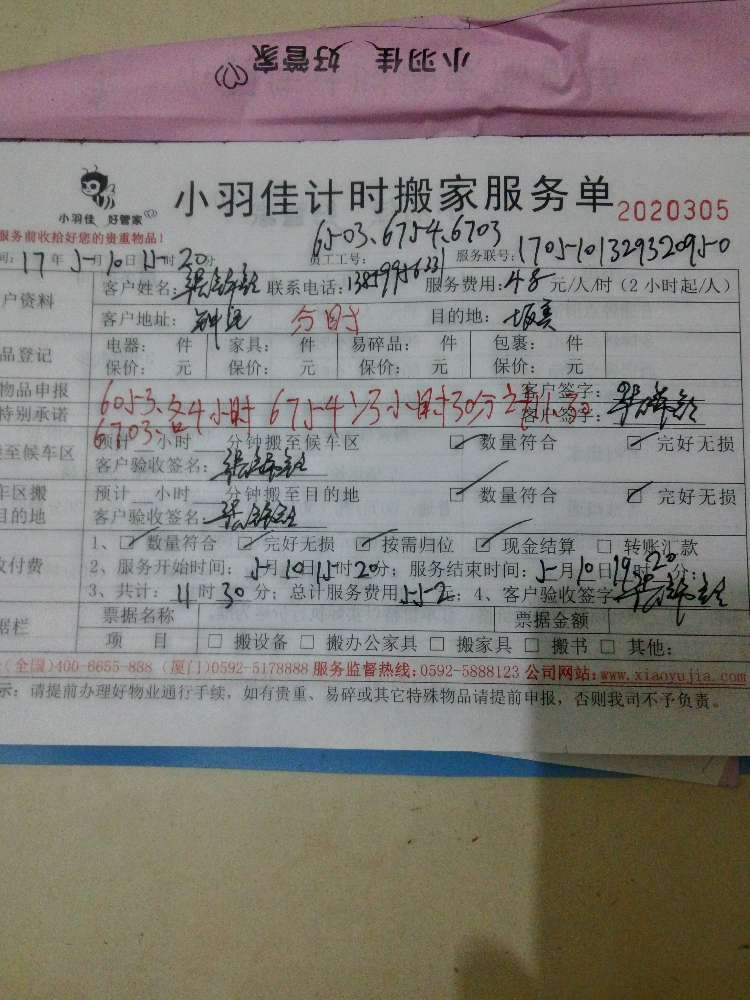 小羽佳 好管家
小羽佳 好管家
小羽佳计时搬家服务单 2020305
服务前收拾好您的贵重物品!
6503、6754、6703
间: 17年5月10日15时20分 员工工号: 服务联号: 1705101329320950
户资料 客户姓名: 联系电话: 服务费用: 48 元/人/时 (2小时起/人)
客户地址: 分时 目的地:
品登记 电器: 件 家具: 件 易碎品: 件 包裹: 件
保价: 元 保价: 元 保价: 元 保价: 元
物品申报 客户签字:
特别承诺 6053、各4小时 6754 小时30分 客户签字:
6703、
至候车区 预计 小时 分钟搬至候车区 ☑ 数量符合 ☑ 完好无损
客户验收签名:
车区搬 预计 小时 分钟搬至目的地 ☑ 数量符合 ☑ 完好无损
目的地 客户验收签名:
1、☑ 数量符合 ☑ 完好无损 ☑ 按需归位 ☑ 现金结算 □ 转账汇款
收付费 2、服务开始时间: 5月10日15时20分; 服务结束时间: 5月10日19时20分;
3、共计: 11时30分; 总计服务费用 552元; 4、客户验收签字
据栏 票据名称 票据金额
项 目 □ 搬设备 □ 搬办公家具 □ 搬家具 □ 搬书 □ 其他:
(全国)400-6655-838 (厦门)0592-5178888 服务监督热线:0592-5888123 公司网站:www.xiaoyujia.com
示: 请提前办理好物业通行手续, 如有贵重、易碎或其它特殊物品请提前申报, 否则我司不予负责。